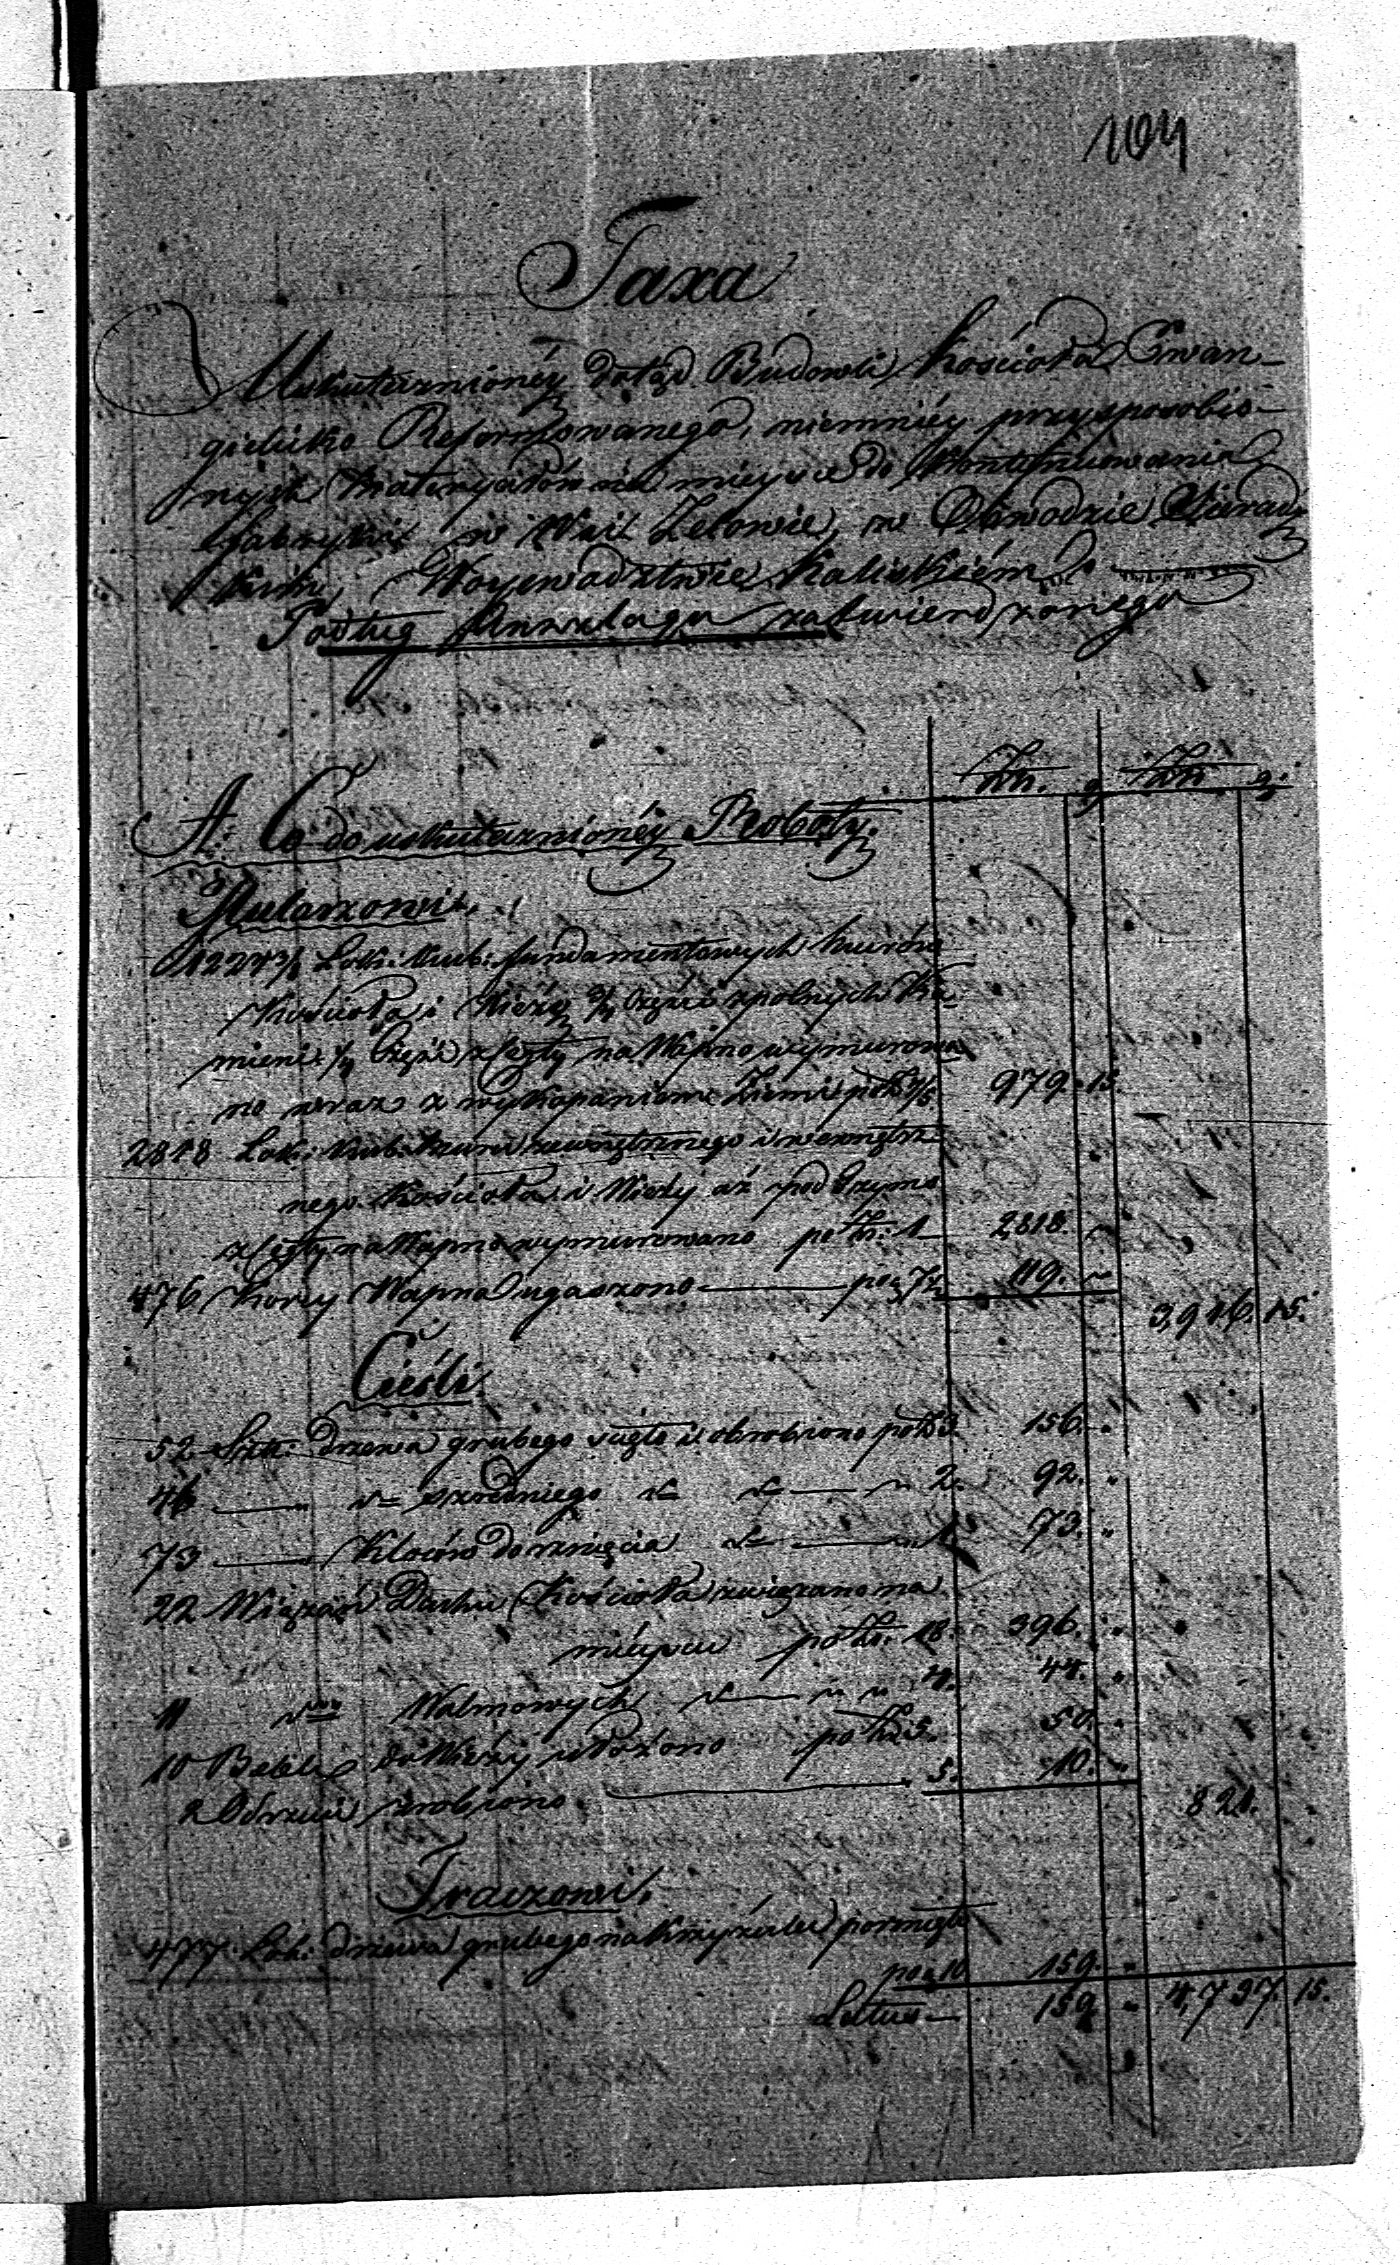 104
Taxa
Uskutecznionéy dotąd Budowli Kościoła Ewan-
gielicko Reformowanego, niemniéy przysposobio-
nych Materyałów na mieyscu do kontynuowania
fabryki w Wsi Zelowie, w Obwodzie Sieradz-
kim, Woyewodztwie Kaliskiém
Podług Anszlagu zatwierdzonego
Złn. g. Złn. g.
A. Co do uskutecznionéy Roboty.
Mularzowi.
1224 3/8 Łok: kub: fundamentowych murów
Kościoła i Wieży 3/4 Części z polnych Ka-
mieni 1/4 Części z Cegły na Wapno wymurowa-
no wraz z wykopaniem Ziemi po 979. 15.
2818 Łok: kub: muru zewnętrznego i wewnętrz-
nego Kościoła i Wieży aż pod Gzyms
z Cegły na Wapno wymurowano po Zł: 1 2818. "
476 Korcy Wapna ugaszono po g 7 1/2 119. "
3,916. 15.
Cieśli
52 Sztk: drzewa grubego ścięto i obrobiono po Zł 3. 156. "
46 " d- srzedniego d- d- " 2. 92. "
73 " Kloców do rznięcia d- " 1 73. "
22 Wiązań Dachu Kościoła związano na
mieyscu po Zł: 18. 396. "
11 d- Walmowych d- " " 4. 44. "
10 Belek do Wieży ułożono po Zł 5. 50. "
2 Odrzwi zrobiono " 5. 10. "
821. "
Traczowi.
477 Łok: drzewa grubego na Krzyżulce porznięto
po g 10 159. "
Latus 159 " 4,737 15.